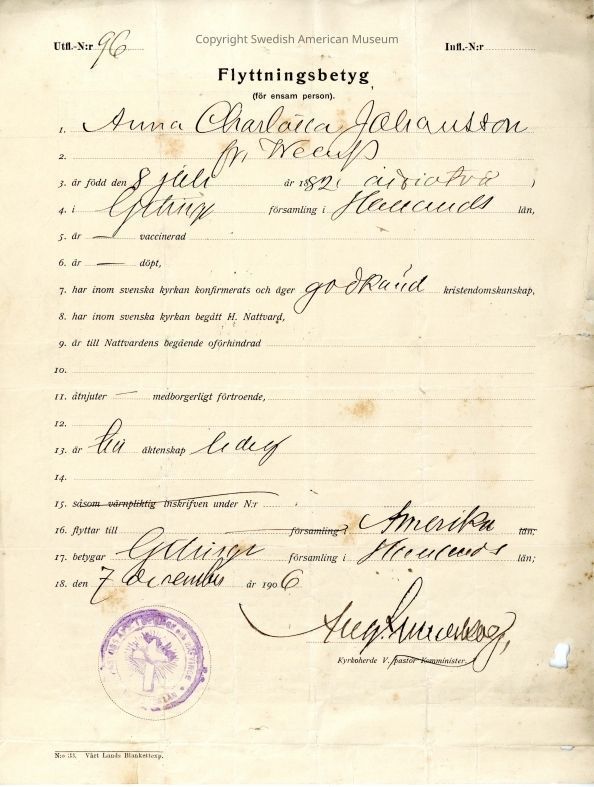 Copyright Swedish American Museum
Utfl.-N:r 96 Infl.-N:r
Flyttningsbetyg
(för ensam person).
1. Anna Charlotta Johansson
2. fr.
3. är född den 8 juli år 1882, åttiotvå )
4. i Getinge församling i Hallands län,
5. är — vaccinerad
6. är — döpt,
7. har inom svenska kyrkan konfirmerats och äger godkänd kristendomskunskap,
8. har inom svenska kyrkan begått H. Nattvard,
9. är till Nattvardens begående oförhindrad
10.
11. åtnjuter — medborgerligt förtroende,
12.
13. är till äktenskap ledig
14.
15. såsom värnpliktig inskrifven under N:r
16. flyttar till församling i Amerika län;
17. betygar Getinge församling i Hallands län;
18. den 7 december år 1906
Kyrkoherde V. pastor Komminister.
N:o 33. Vårt Lands Blankettexp.